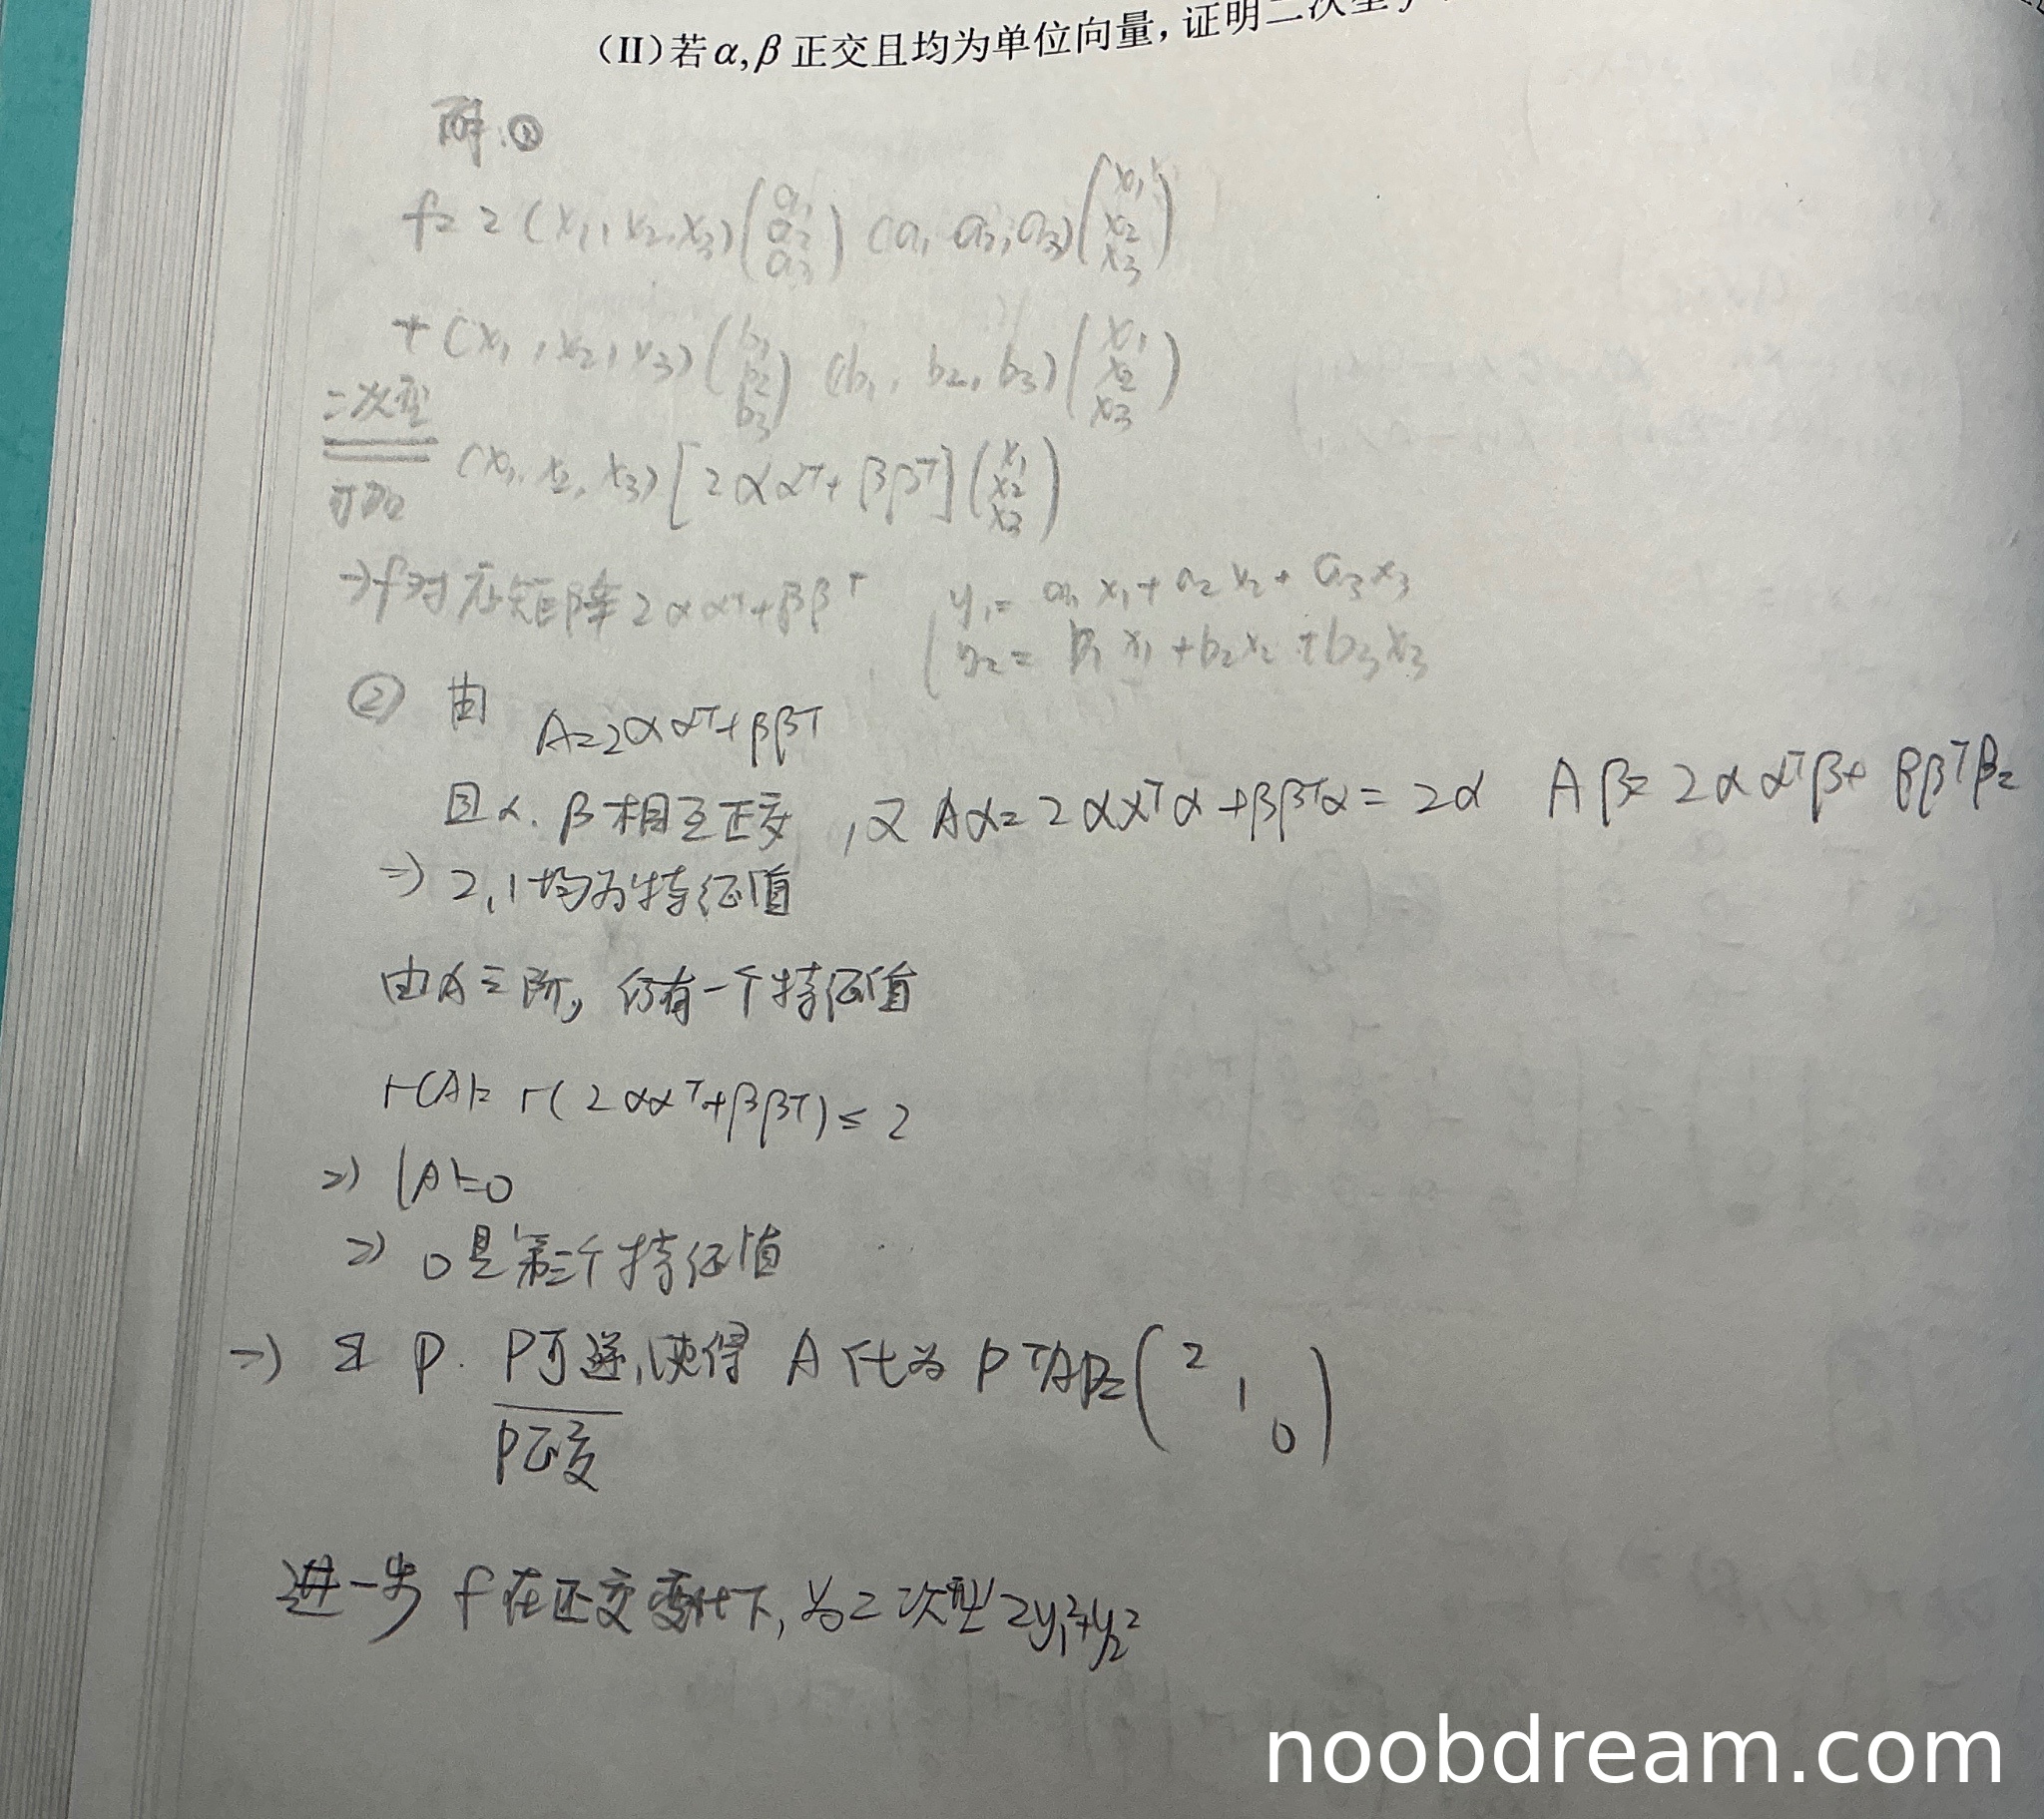 (Ⅱ)若α,β正交且均为单位向量,证明二次型
解:①
f=2(x₁,x₂,x₃)(a₁ a₂ a₃)(a₁ a₂,a₃)(x₁ x₂ x₃)
+(x₁,x₂,x₃)(b₁ b₂ b₃)(b₁,b₂,b₃)(x₁ x₂ x₃)
二次型
可加
(x₁,x₂,x₃)[2αα^T+ββ^T](x₁ x₂ x₃)
⇒f对应矩阵2αα^T+ββ^T
y₁=a₁x₁+a₂x₂+a₃x₃
y₂=b₁x₁+b₂x₂+b₃x₃
② 由
A=2αα^T+ββ^T
且α.β相互正交,又Aα=2αα^Tα+ββ^Tα=2α Aβ=2αα^Tβ+ββ^Tβ=
⇒2,1均为特征值
由A三阶,仍有一个特征值
r(A)=r(2αα^T+ββ^T)≤2
⇒|A|=0
⇒0是第三个特征值
⇒∃P.P可逆,使得A化为P^TAP=(2 1 0)
P正交
进一步f在正交变化下,为二次型2y₁²+y₂²
noobdream.com